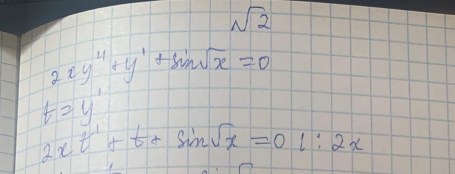 √2
2xy'' + y' + sin√x = 0
t = y'
2xt' + t + sin√x = 0 | : 2x